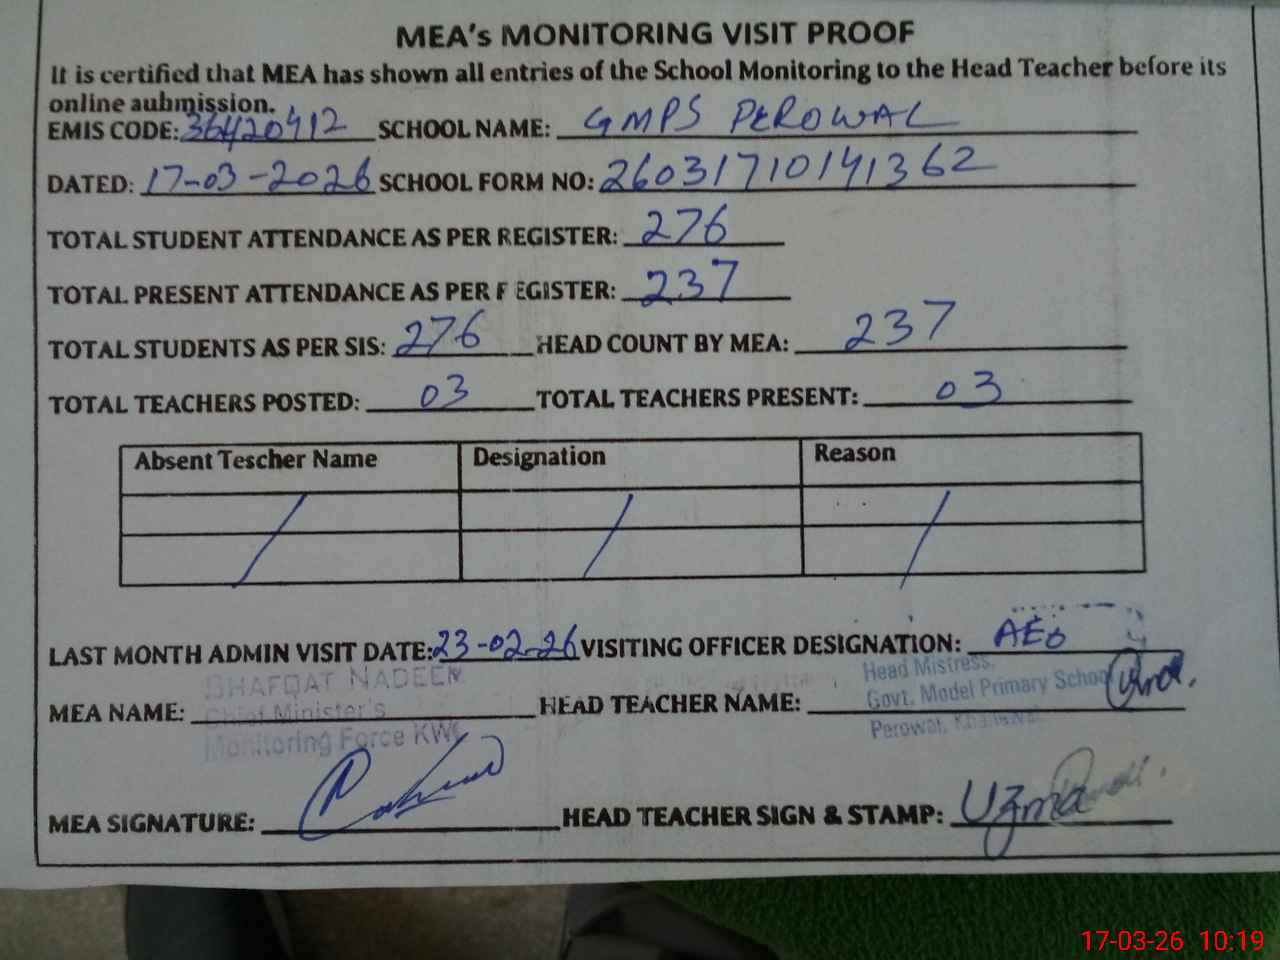 MEA's MONITORING VISIT PROOF
It is certified that MEA has shown all entries of the School Monitoring to the Head Teacher before its
online aubmission.
EMIS CODE: 36420412 SCHOOL NAME: GMPS PEROWAL
DATED: 17-03-2026 SCHOOL FORM NO: 26031710141362
TOTAL STUDENT ATTENDANCE AS PER REGISTER: 276
TOTAL PRESENT ATTENDANCE AS PER REGISTER: 237
TOTAL STUDENTS AS PER SIS: 276 HEAD COUNT BY MEA: 237
TOTAL TEACHERS POSTED: 03 TOTAL TEACHERS PRESENT: 03
Absent Tescher Name Designation Reason
LAST MONTH ADMIN VISIT DATE: 23-02-26 VISITING OFFICER DESIGNATION: AEO
SHAFQAT NADEEM
Chief Minister's
Monitoring Force KWL
MEA NAME: HEAD TEACHER NAME:
Head Mistress,
Govt. Model Primary School
Perowal, Khanewal
MEA SIGNATURE: HEAD TEACHER SIGN & STAMP: Uzma
17-03-26 10:19